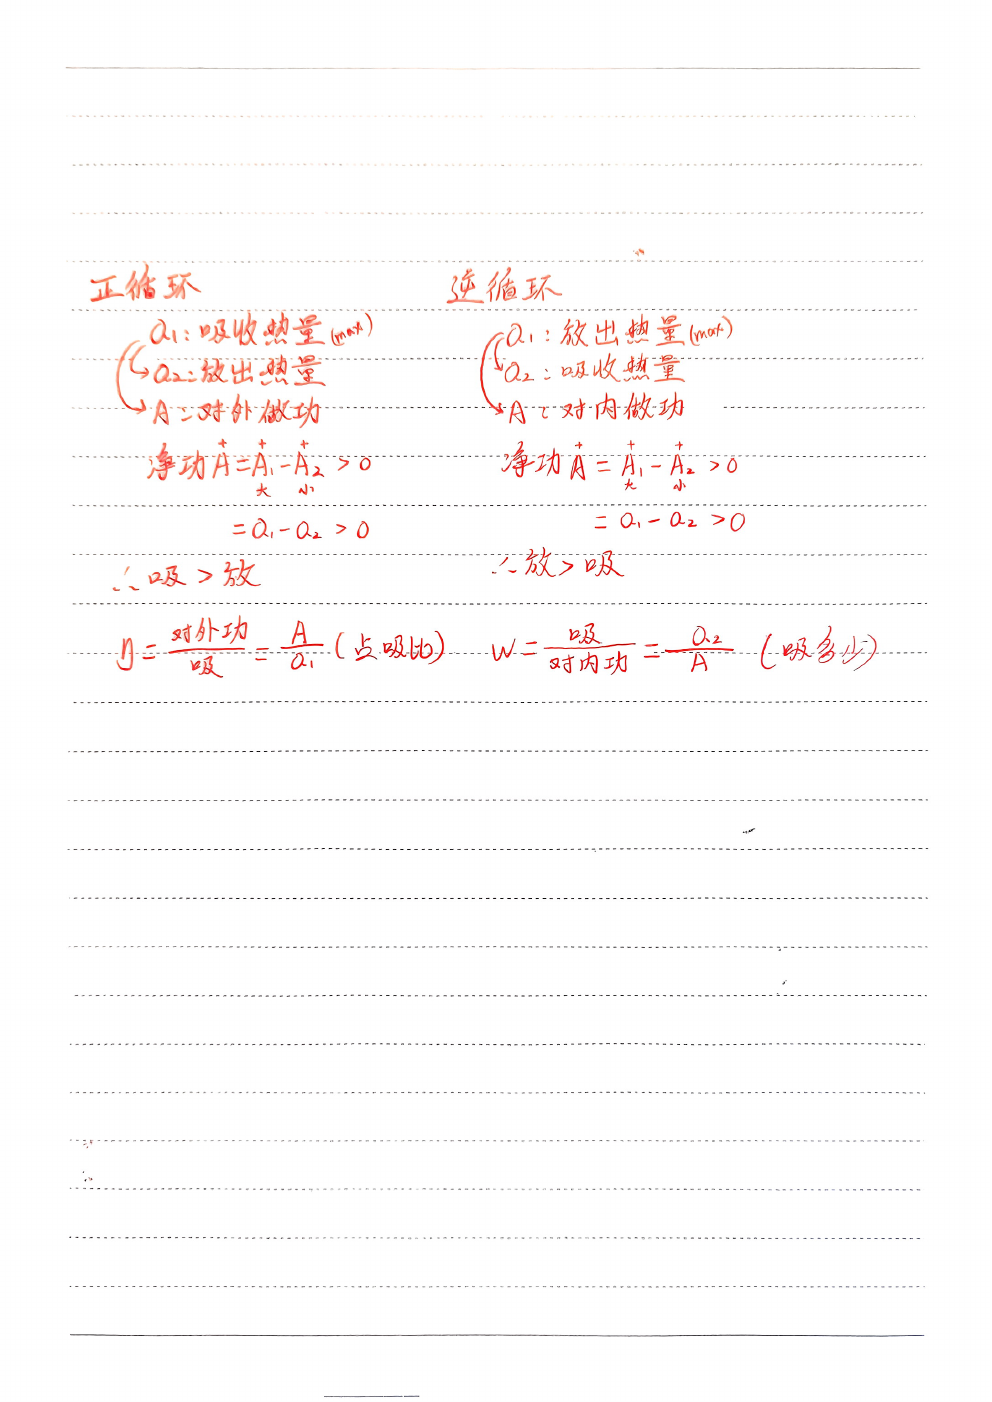 正循环
Q1：吸收热量(max)
Q2：放出热量
A：对外做功
净功A⁺=A₁⁺-A₂⁺>0
大 小
=Q1-Q2>0
∴吸>放
η=对外功/吸=A/Q1(占吸比)
逆循环
Q1：放出热量(max)
Q2：吸收热量
A：对内做功
净功A⁺=A₁⁺-A₂⁺>0
大 小
=Q1-Q2>0
∴放>吸
W=吸/对内功=Q2/A(吸多少)